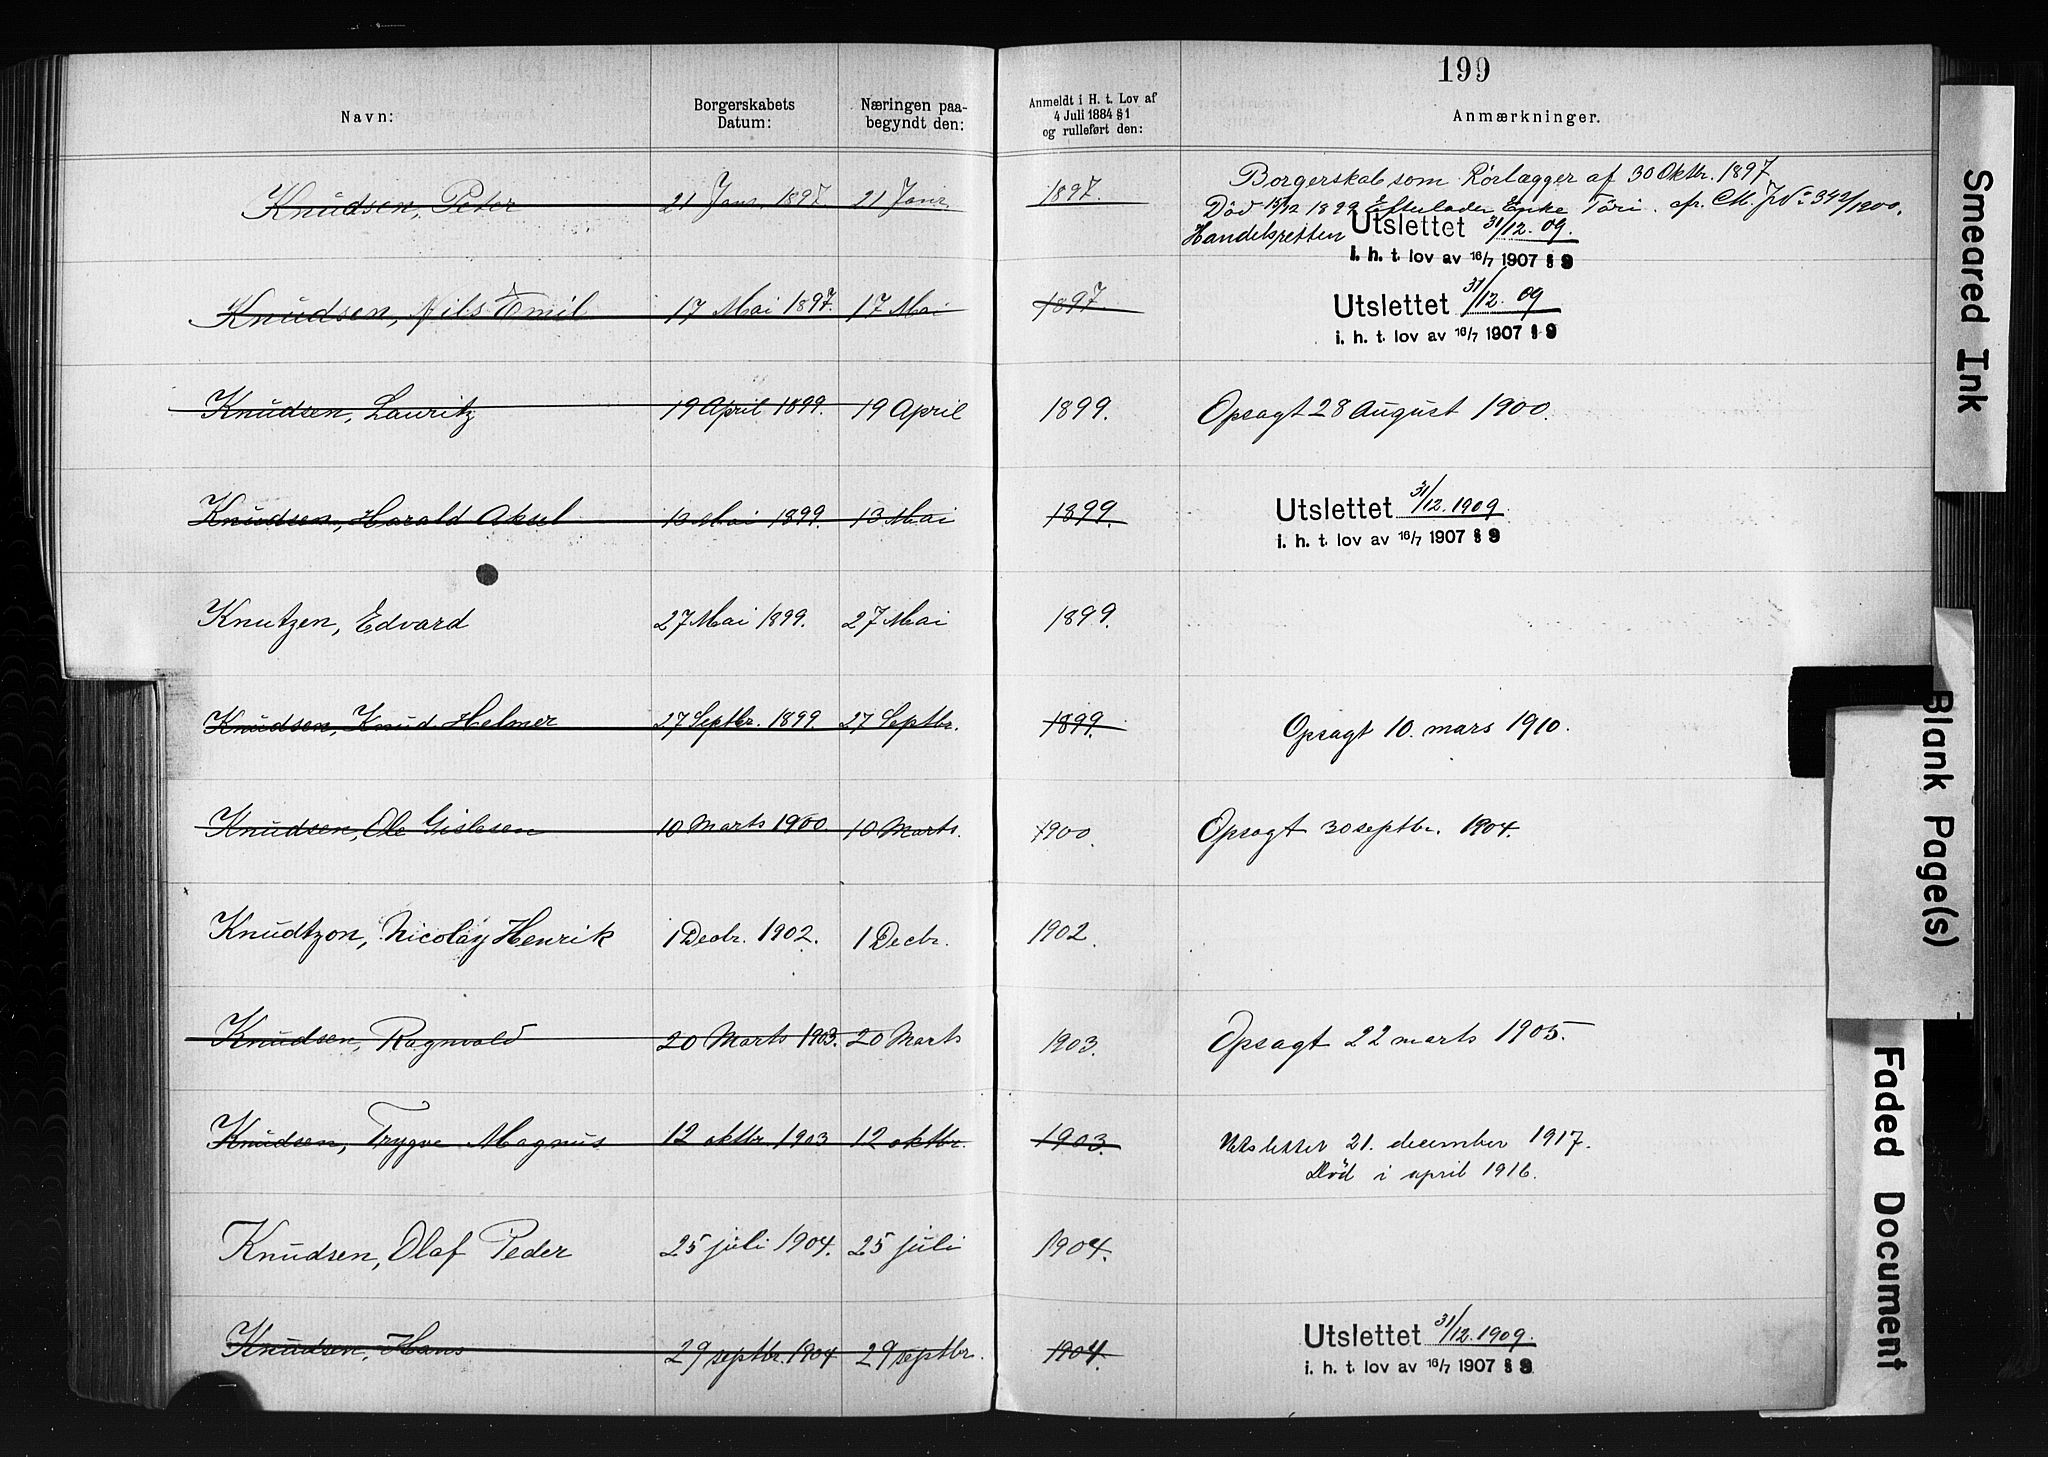 199
Navn: Borgerskabets Datum: Næringen paabegyndt den: Anmeldt i H. t. Lov af 4 Juli 1884 § 1 og rulleført den: Anmærkninger.
Knudsen, Peter 21 Janr. 1897. 21 Janr. 1897. Borgerskab som Rørlægger af 30 Oktbr. 1897
Død 15/12 1899 Efterlader Enke Töri. cfr. CM. J.No 342/1900.
Handelsretten Utslettet 31/12. 09.
i. h. t. lov av 16/7 1907 § 9
Knudsen, Nils Emil 17 Mai 1897. 17 Mai 1897. Utslettet 31/12. 09
i. h. t. lov av 16/7 1907 § 9
Knudsen, Lauritz 19 April 1899. 19 April 1899. Opsagt 28 August 1900.
Knudsen, Harald Aksel 13 Mai 1899. 13 Mai 1899. Utslettet 31/12. 1909
i. h. t. lov av 16/7 1907 § 9
Knutzen, Edvard 27 Mai 1899. 27 Mai 1899.
Knudsen, Knud Helmer 27 Septbr. 1899 27 Septbr. 1899. Opsagt 10. mars 1910.
Knudsen, Ole Gislesen 10 Marts 1900 10 Marts. 1900. Opsagt 30 septbr. 1904.
Knudtzon, Nicolay Henrik 1 Decbr. 1902. 1 Decbr. 1902.
Knudsen, Ragnvald 20 Marts 1903. 20 Marts 1903. Opsagt 22 marts 1905.
Knudsen, Trygve Magnus 12 oktbr 1903 12 oktbr. 1903. Utslettet 21. december 1917.
Död i april 1916.
Knudsen, Olaf Peder 25 juli 1904. 25 juli 1904.
Knudsen, Hans 29 septbr. 1904 29 septbr. 1904. Utslettet 31/12. 1909.
i. h. t. lov av 16/7 1907 § 9
Smeared Ink
Blank Page(s)
Faded Document